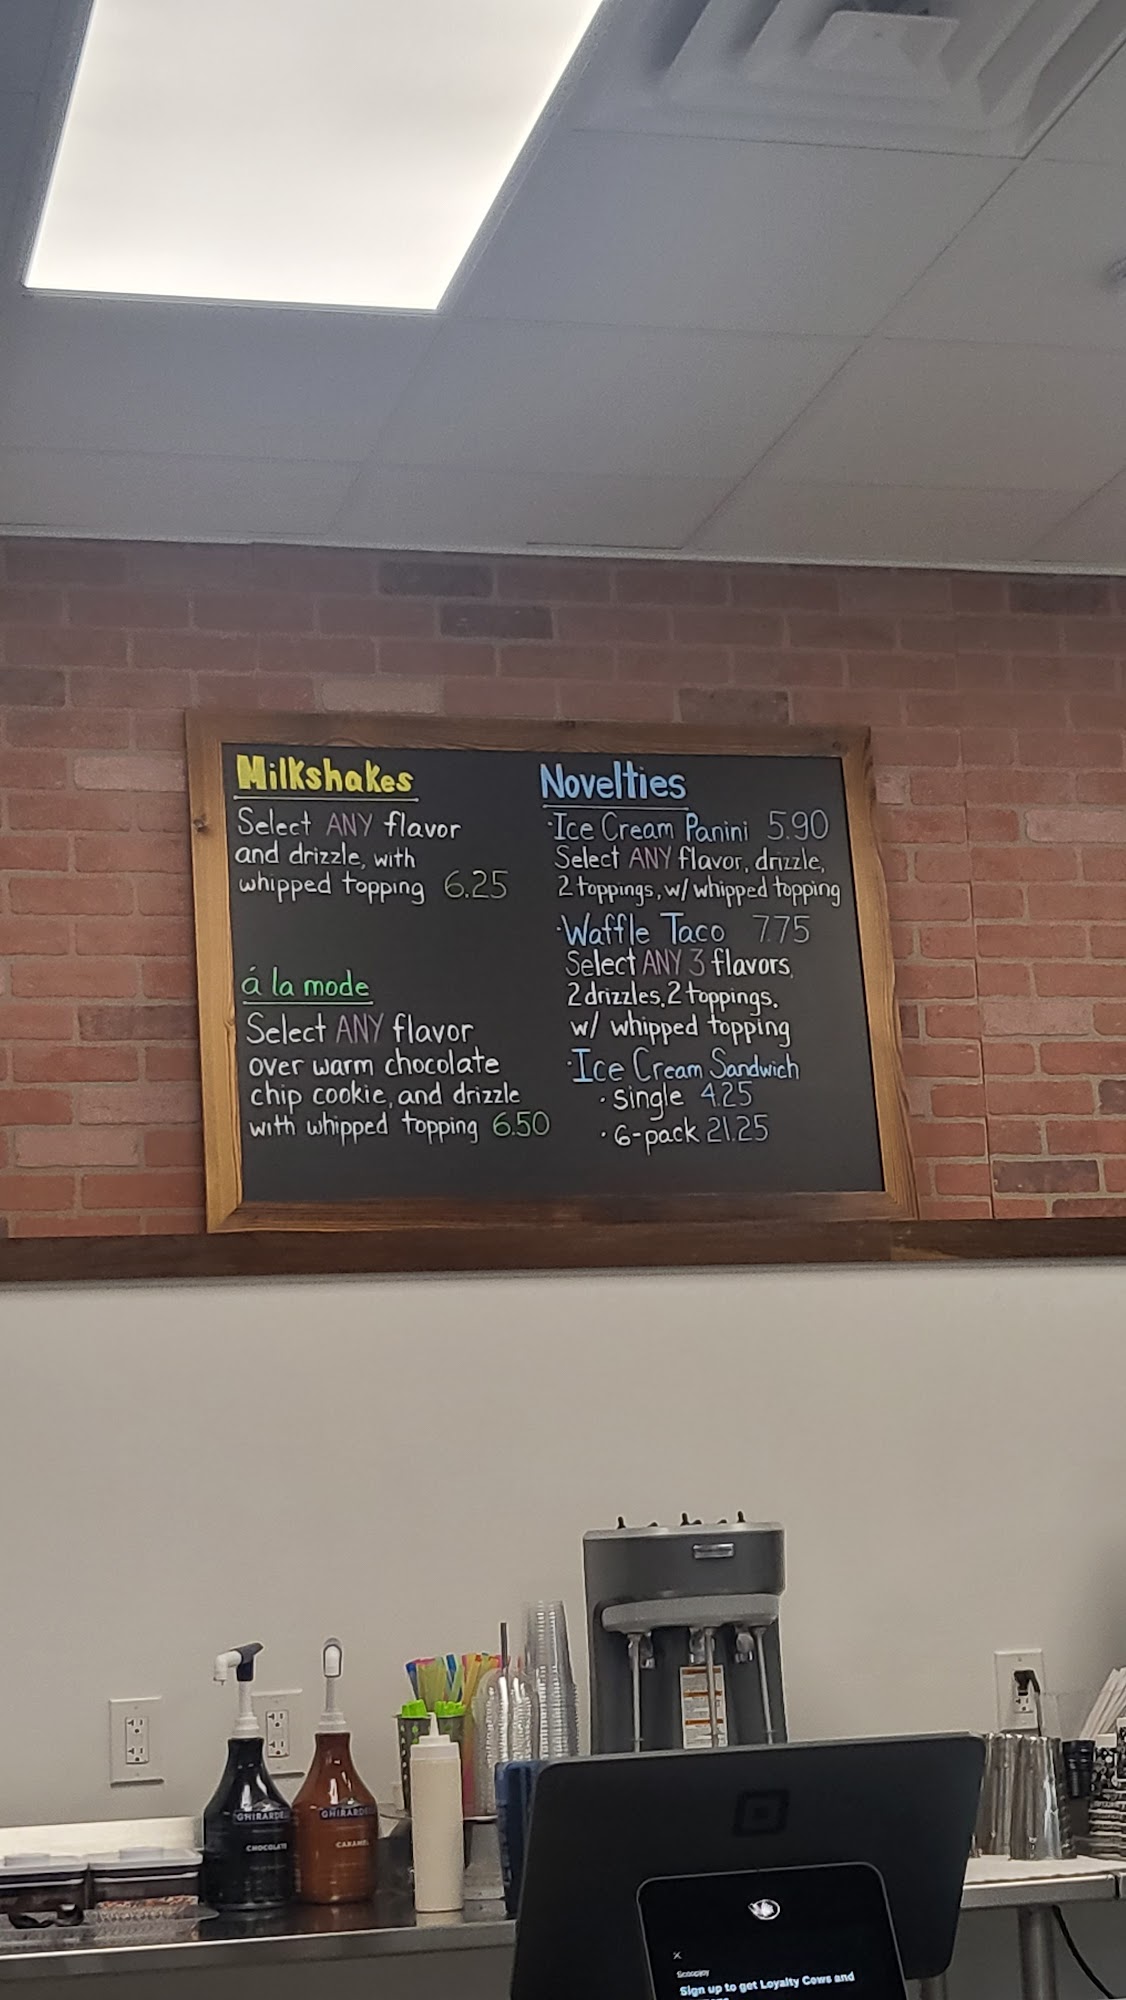 Milkshakes
Select ANY flavor
and drizzle, with
whipped topping 6.25
á la mode
Select ANY flavor
over warm chocolate
chip cookie, and drizzle
with whipped topping 6.50
Novelties
·Ice Cream Panini 5.90
Select ANY flavor, drizzle,
2 toppings, w/ whipped topping
·Waffle Taco 7.75
Select ANY 3 flavors,
2 drizzles, 2 toppings.
w/ whipped topping
·Ice Cream Sandwich
·single 4.25
·6-pack 21.25
GHIRARDE
CHOCOLATE
GHIRARDE
CARAMEL
Scoopjoy
Sign up to get Loyalty Cows and